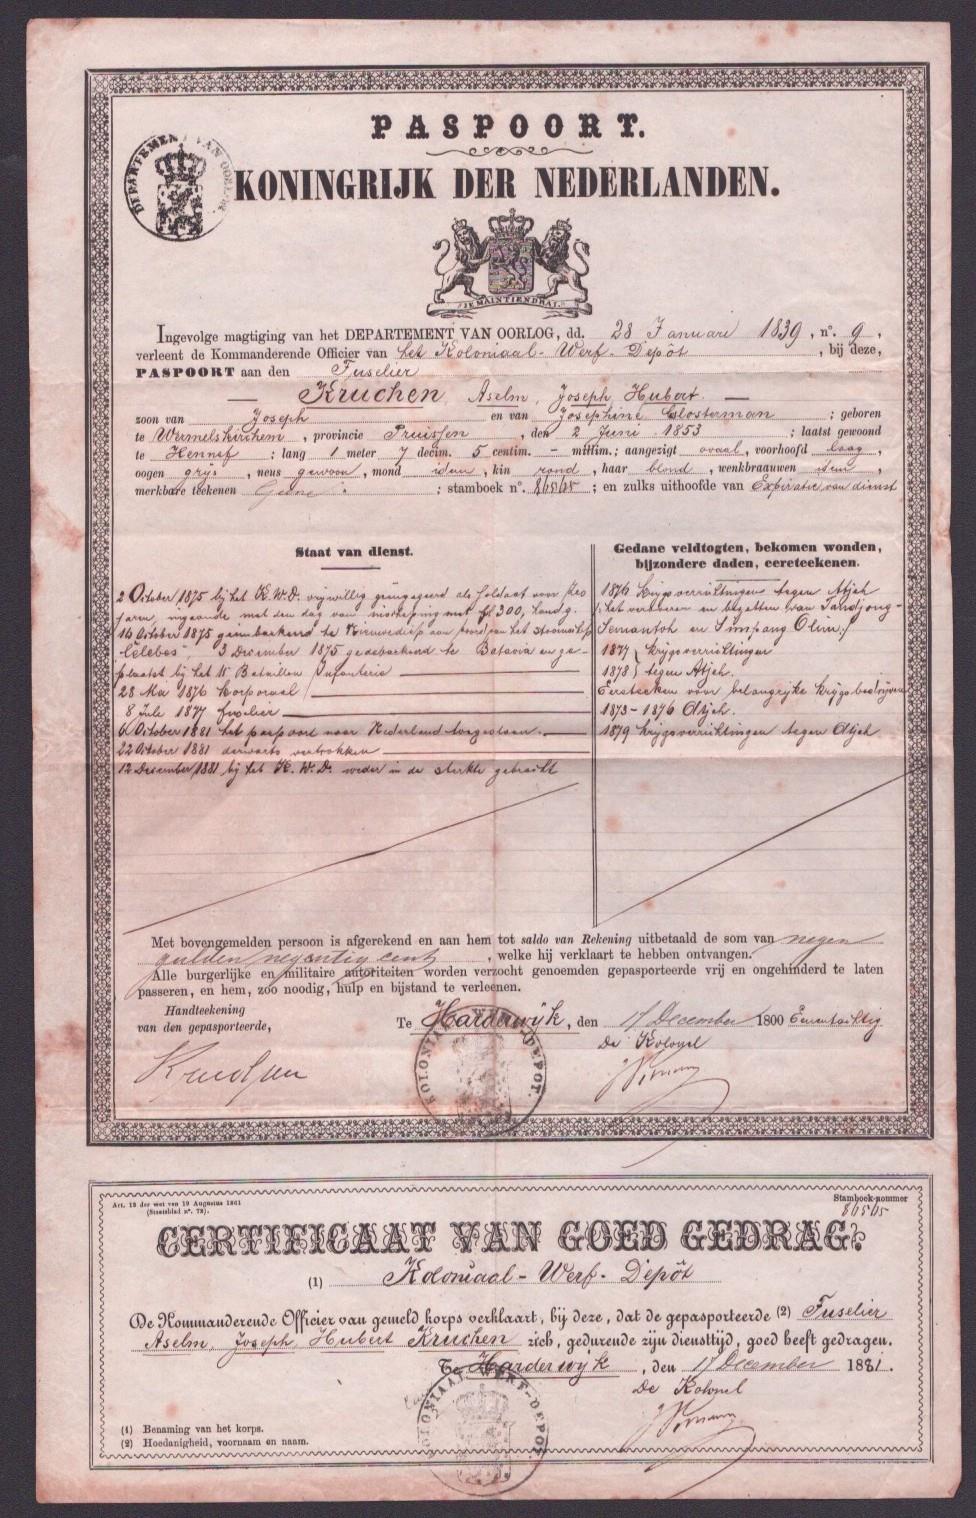 PASPOORT.
DEPARTEMENT VAN OORLOG.
KONINGRIJK DER NEDERLANDEN.
JE MAINTIENDRAI.
Ingevolge magtiging van het DEPARTEMENT VAN OORLOG, dd. 28 Januari 1839, n°. 9,
verleent de Kommanderende Officier van het Koloniaal-Werf-Depôt, bij deze,
PASPOORT aan den Fuselier
— Kruchen, Aselm, Joseph Hubert. —
zoon van Joseph en van Josephine Closterman ; geboren
te Wermelskirchem, provincie Pruissen, den 2 Juni 1853 ; laatst gewoond
te Hennef ; lang 1 meter 7 decim. 5 centim. - millim.; aangezigt ovaal, voorhoofd laag,
oogen grijs, neus gewoon, mond idem, kin rond, haar blond, wenkbraauwen idem,
merkbare teekenen Geene. ; stamboek n°. 86565 ; en zulks uithoofde van Expiratie van dienst
Staat van dienst.
2 October 1875 bij het K.W.D. vrijwillig geëngageerd als soldaat voor zes
jaren, ingaande met den dag van inscheping met fl 300, handg.
16 October 1875 geembarkeerd te Nieuwediep aan boord van het stoomschip
"Celebes", 3 December 1875 gedebarkeerd te Batavia en ge-
plaatst bij het 11e Bataillon Infanterie
28 Mei 1876 korporaal
8 Julij 1877 fuselier
6 October 1881 het paspoort naar Nederland toegestaan.
22 October 1881 derwaarts vertrokken
12 December 1881 bij het K.W.D. weder in de sterkte gebracht
Gedane veldtogten, bekomen wonden,
bijzondere daden, eereteekenen.
1876 krijgsverrichtingen tegen Atjeh
(het veroveren en bezetten van Tandjong-
Semantoh en Simpang Olim.)
1877 } krijgsverrichtingen
1878 } tegen Atjeh.
Eereteeken voor belangrijke krijgsbedrijven
1873-1876 Atjeh.
1879 krijgsverrichtingen tegen Atjeh
Met bovengemelden persoon is afgerekend en aan hem tot saldo van Rekening uitbetaald de som van negen
gulden negentig cent, welke hij verklaart te hebben ontvangen.
Alle burgerlijke en militaire autoriteiten worden verzocht genoemden gepasporteerde vrij en ongehinderd te laten
passeren, en hem, zoo noodig, hulp en bijstand te verleenen.
Handteekening
van den gepasporteerde,
Te Harderwijk, den 17 December 1800 Eenentachtig
De Kolonel
Kruchen
KOLONIAAL WERF-DEPOT.
Art. 13 der wet van 19 Augustus 1861
(Staatsblad n°. 72).
Stamboek-nommer
86565
CERTIFICAAT VAN GOED GEDRAG.
(1) Koloniaal-Werf-Depôt
De Kommanderende Officier van gemeld korps verklaart, bij deze, dat de gepasporteerde (2) Fuselier
Aselm, Joseph, Hubert Kruchen zich, gedurende zijn diensttijd, goed heeft gedragen.
Te Harderwijk, den 17 December 1881.
De Kolonel
KOLONIAAL WERF-DEPOT.
(1) Benaming van het korps.
(2) Hoedanigheid, voornaam en naam.